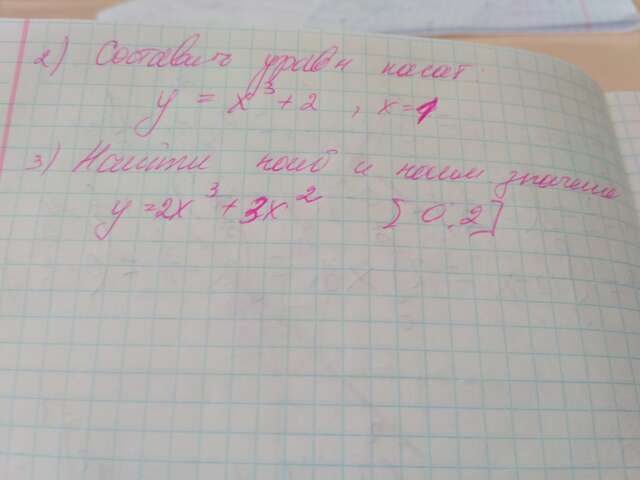 2) Составить уравн касат
y = x³ + 2 , x = 1
3) Найти наиб и наим значение
y = 2x³ + 3x² [0,2]